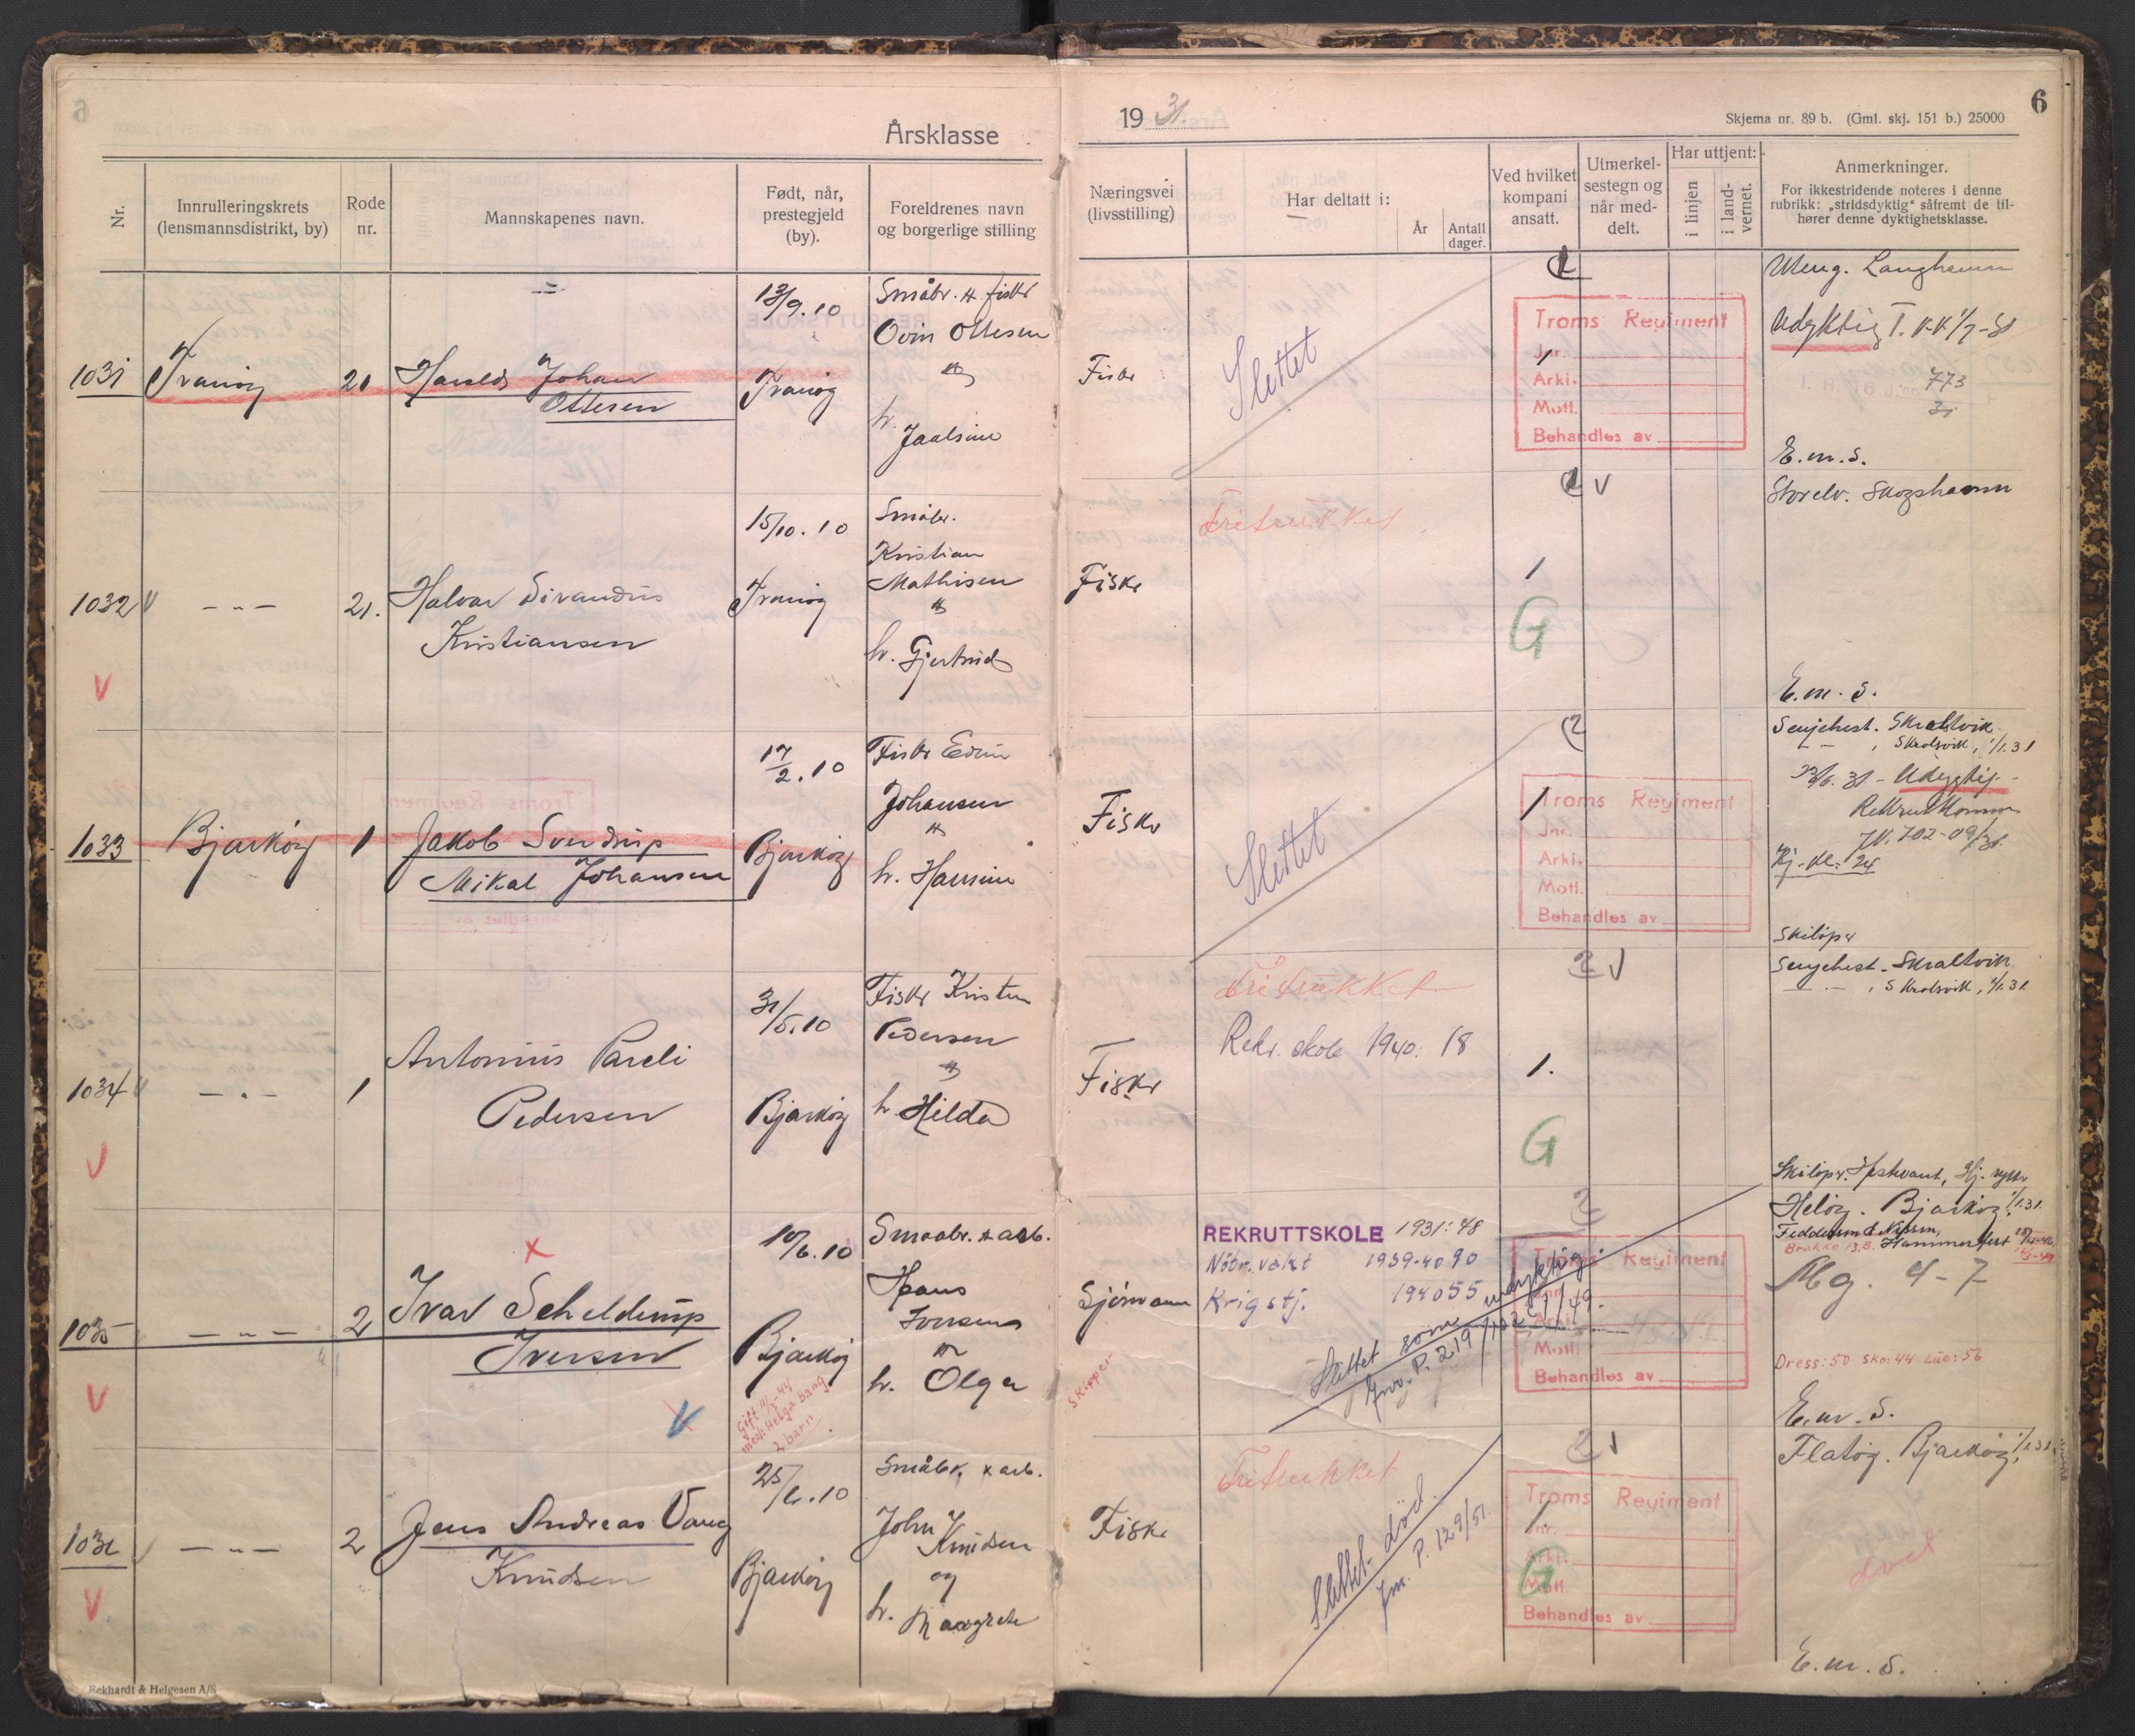 Årsklasse
1931
Skjema nr. 89 b. (Gml. skj. 151 b.) 25000
6
Nr.
Innrulleringskrets
(lensmannsdistrikt, by)
Rode
nr.
Mannskapenes navn.
Født, når,
prestegjeld
(by).
Foreldrenes navn
og borgerlige stilling
Næringsvei
(livsstilling)
Har deltatt i:
År
Antall
dager.
Ved hvilket
kompani
ansatt.
Utmerkel-
sestegn og
når med-
delt.
Har uttjent:
i linjen
i land-
vernet.
Anmerkninger.
For ikkestridende noteres i denne
rubrikk: „stridsdyktig“ såfremt de til-
hører denne dyktighetsklasse.
1031
Tranøy
20
Harald Johan
Ottesen
13/9.10
Tranøy
Småbr. & fisker
Ottesen
h.
Fisker
Slettet
Troms Regiment
Jnr.
1
Arki.
Mott.
Behandles av
Udyktig
773
31
E.m.s.
1032 V
- " -
21.
Halvar
Kristiansen
15/10.10
Tranøy
Småbr.
Kristian
Mathisen
&
h. Gjertrud
Fisker
Fritrukket
V
1
G
Storelv. Skogshamn
E.m.s.
V
1033
Bjarkøy
1
Jakob Sverdrup
Mikal Johansen
17/2.10
Bjarkøy
Fisker Edvin
Johansen
&
h. Hansine
Fisker
Slettet
2
Troms Regiment
Jnr.
1
Arki.
Mott.
Behandles av
Senjehest. Skraltvik
- " - , Skrolsvik, 1/1.31
Skiløper
1034 V
- " -
1
Antonius Pareli
Pedersen
31/5.10
Bjarkøy
Fisker Kristen
Pedersen
&
h. Hilda
Fisker
Fritrukket
Rekr. skole 1940: 18
2 V
1.
G
Senjehest. Skraltvik
- " - , Skrolsvik, 1/1.31
V
1035
- " -
2
Ivar Scheldrup
Iversen
10/6.10
Bjarkøy
Gift 11/3-44
med: Helga Bang
2 barn
Smaabr. & arb.
Hans
Iversen
&
h. Olga
Sjømann
Skipper
REKRUTTSKOLE 1931: 48
Nøtr. vakt 1939-40 90
Krigstj. 1940 55
Slettet som udyktig
2
Troms Regiment
Mott.
Behandles av
Skiløper.
Heløy. Bjarkøy, 1/1.31.
Hammerfest
Mg. 4-7
Dress: 50 Sko: 44 Lue: 56
E.m.s.
V
V
- " -
2
Jens Andreas Vang
Knudsen
25/6.10
Bjarkøy
Småbr. & arb.
John
Knudsen
og
h. Margrete
Fisker
Fritrukket
Slettet. død.
Jnr. P. 129/51.
2 V
Troms Regiment
Jnr.
1.
Arki.
G
Mott.
Behandles av
Flatøy. Bjarkøy, 1/1.31
død
E.m.s.
V
Rekhardt & Helgesen A/S